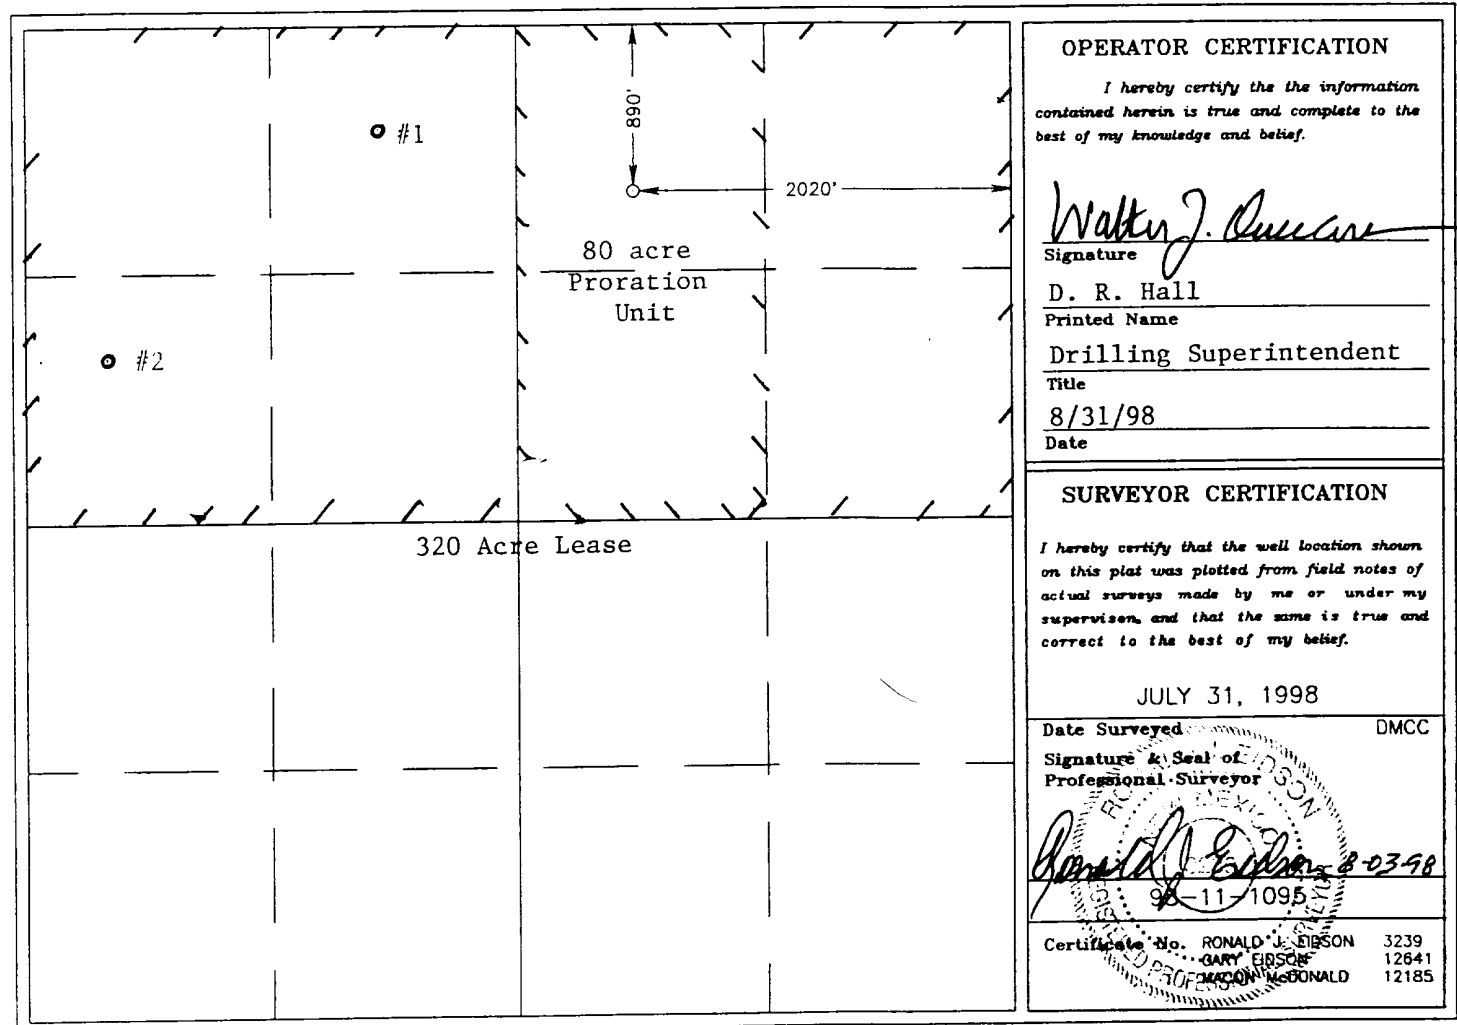 890'
#1
2020'
80 acre
Proration
Unit
#2
320 Acre Lease
OPERATOR CERTIFICATION
I hereby certify the the information
contained herein is true and complete to the
best of my knowledge and belief.
Walter J.
Signature
D. R. Hall
Printed Name
Drilling Superintendent
Title
8/31/98
Date
SURVEYOR CERTIFICATION
I hereby certify that the well location shown
on this plat was plotted from field notes of
actual surveys made by me or under my
supervison, and that the same is true and
correct to the best of my belief.
JULY 31, 1998
Date Surveyed DMCC
Signature & Seal of
Professional Surveyor
RONALD J. EIDSON
NEW MEXICO
REGISTERED PROFESSIONAL SURVEYOR
Ronald J Eidson 8-03-98
98-11-1095
Certificate No. RONALD J. EIDSON 3239
GARY EIDSON 12641
MACON McDONALD 12185